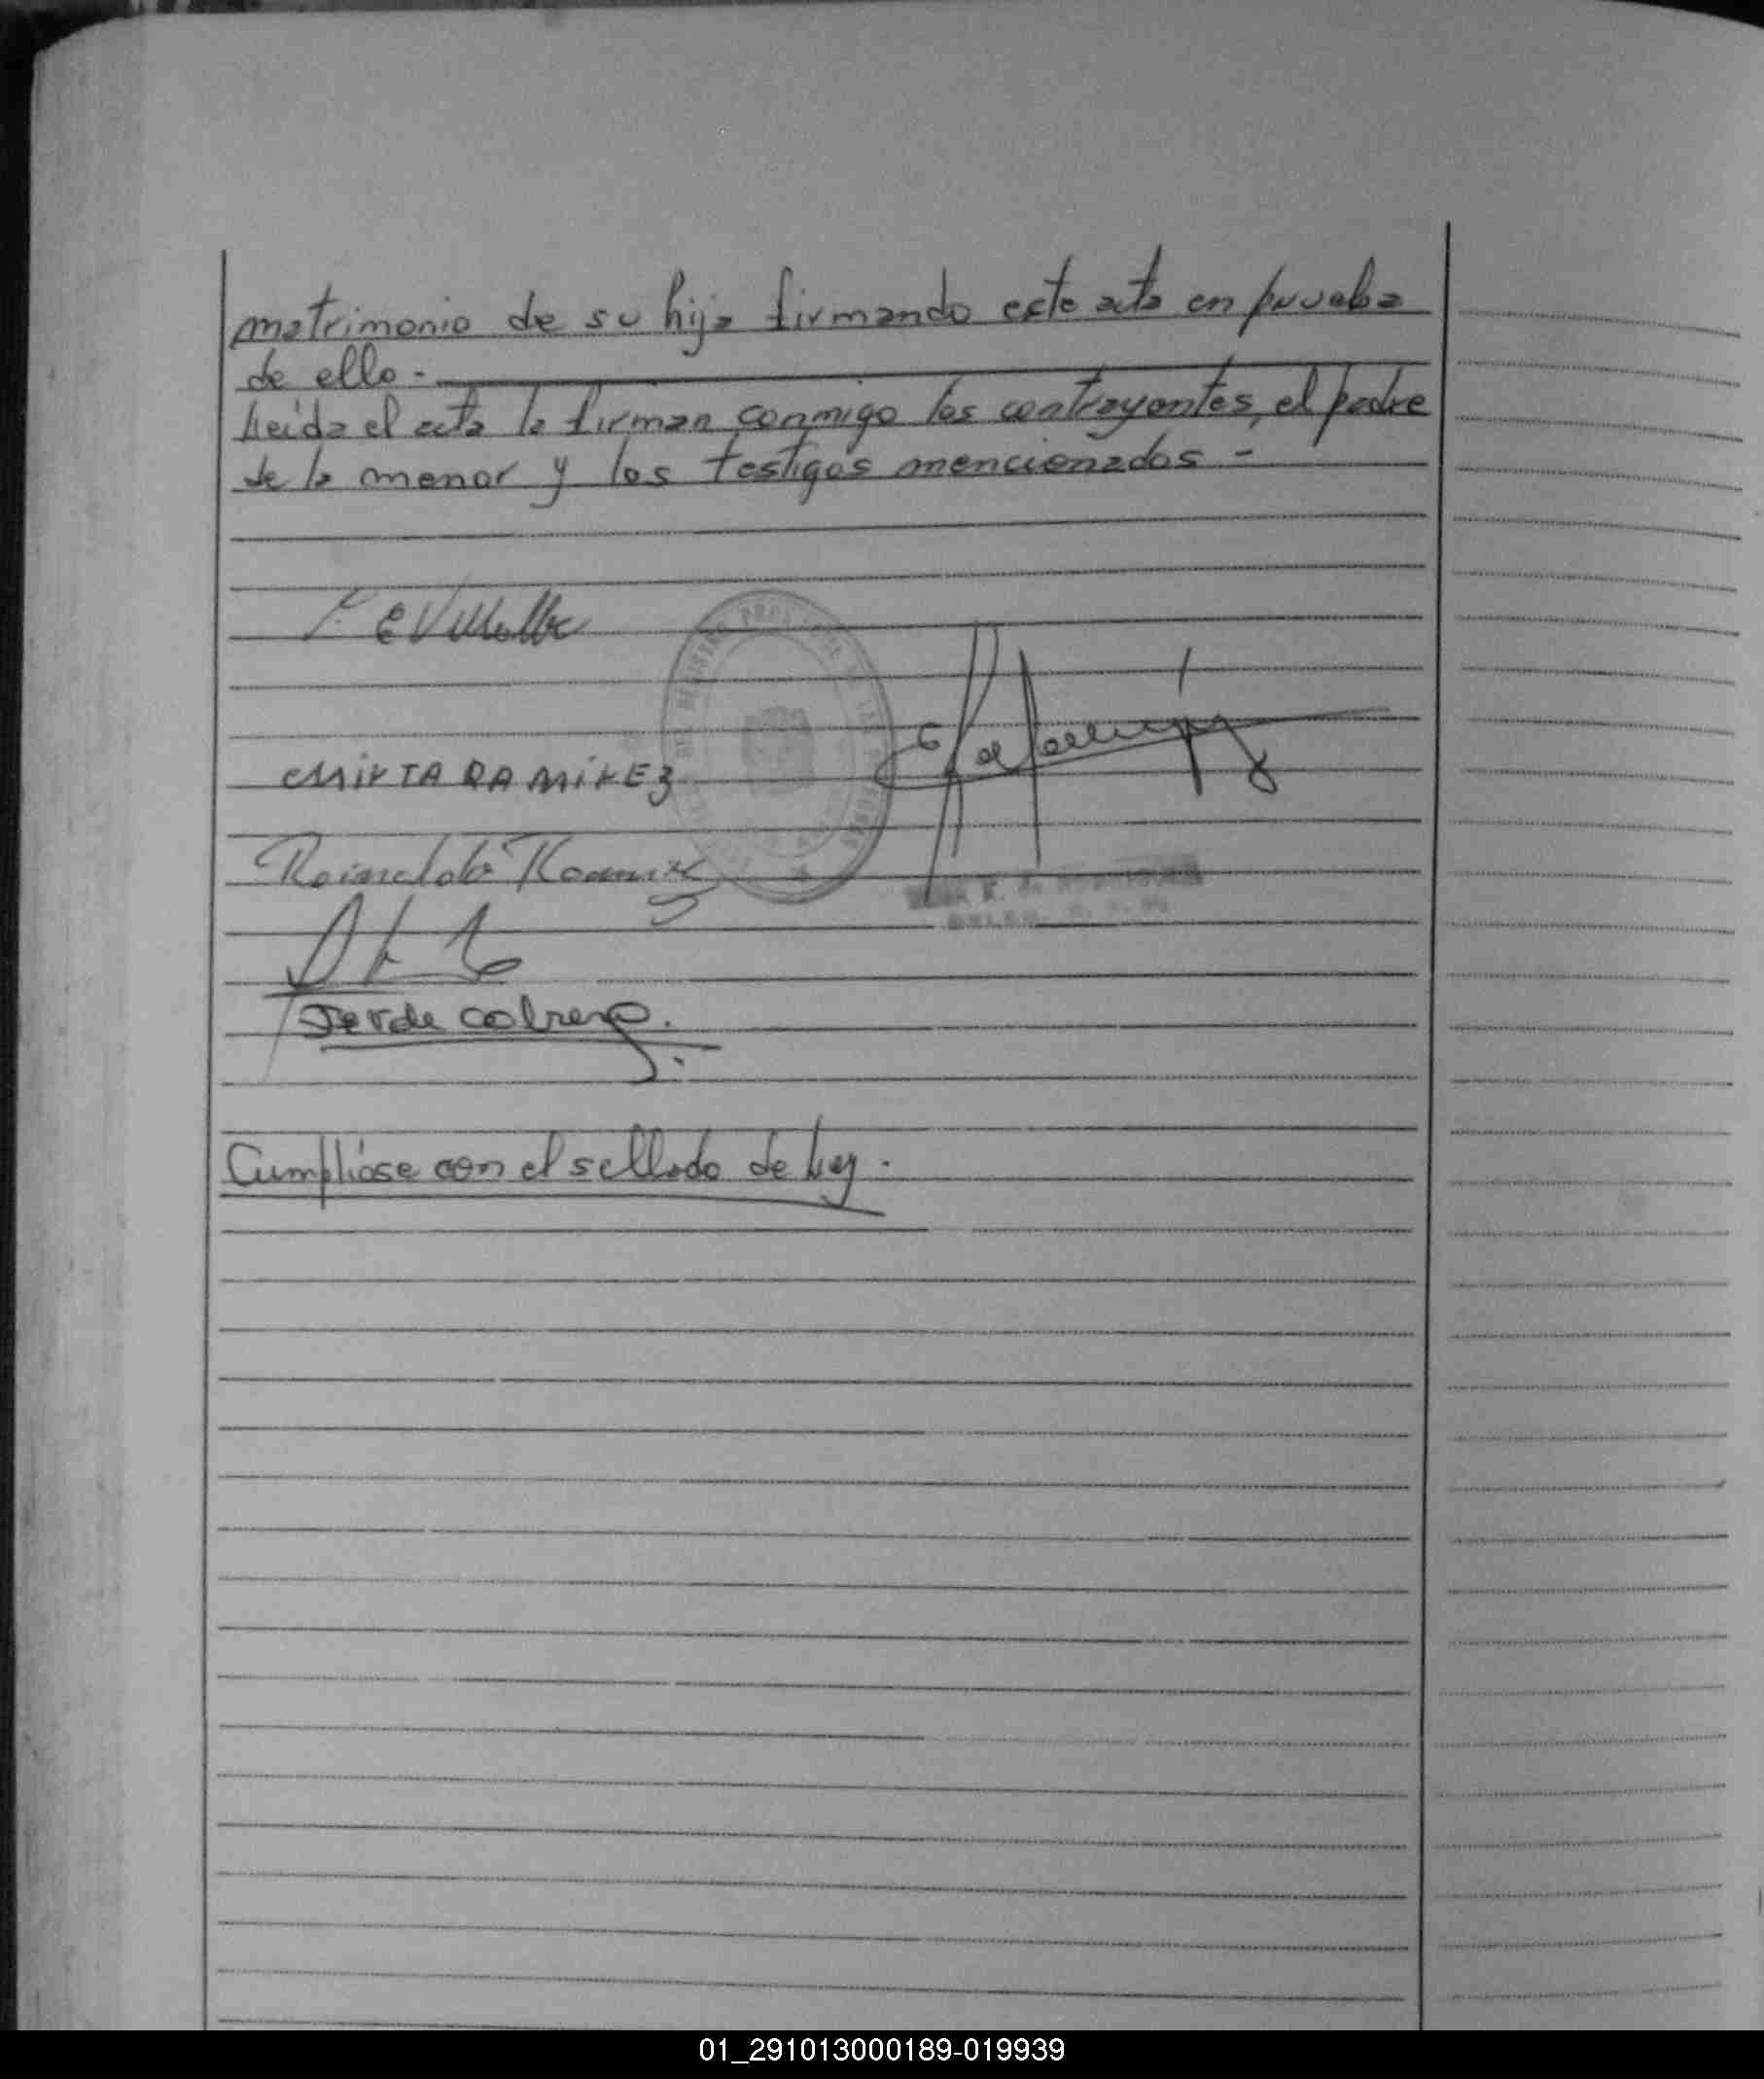 matrimonio de su hija firmando este acta en prueba
de ello.-
Leída el acta la firman conmigo los contrayentes, el padre
de la menor y los testigos mencionados -
E Villalba
MIRTA RAMÍREZ
Reinaldo Ramirez
cabrera.
Cumplióse con el sellado de Ley.
01_291013000189-019939